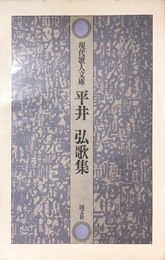 現代歌人文庫
平井 弘歌集
国文社